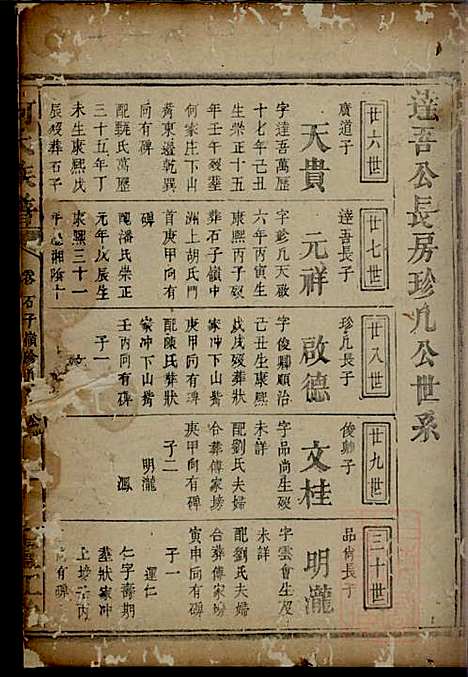 達吾公長房珍凡公世系
廿六世
廣道子
天貴
字達吾萬歷
十七年己丑
生崇正十五
年壬午歿塟
何家庄下山
觜東邉乾巽
向有碑
配魏氏萬歷
三十五年丁
未生康熙戊
辰歿葬石子
廿七世
達吾長子
元祥
字珍凡天啟
六年丙寅生
康熙丙子歿
葬石子嶺中
洲上胡氏門
首庚甲向有
碑
配潘氏崇正
元年戊辰生
康熙三十一
湘陰十
廿八世
珍凡長子
啟德
字俊卿順治
己丑生康熙
戊戌歿葬狀
家冲下山觜
庚甲向有碑
配陳氏葬狀
家冲下山觜
壬丙向有碑
子一
廿九世
俊卿子
文桂
字品尚生歿
未詳
配劉氏夫婦
合葬傅家塝
庚甲向有碑
子二
明瀧
鳳
三十世
品尚長子
明瀧
字雲會生歿
未詳
配劉氏夫婦
合葬傅家塝
寅申向有碑
子一
運仁
仁字壽期
塟狀家冲
上塝 丙
有碑
氏族譜
卷
石子嶺